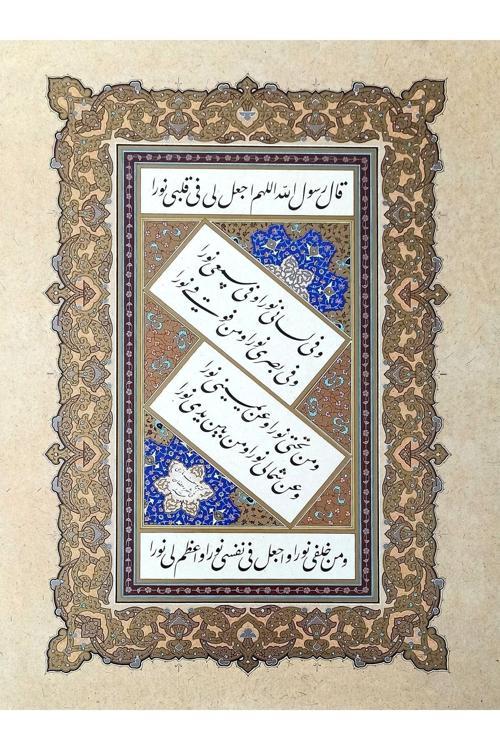 قال رسول الله اللهم اجعل لی فی قلبی نورا
و فی لسانی نورا و فی سمعی نورا
و فی بصری نورا و من فوقی نورا
و من تحتی نورا و عن یمینی نورا
و عن شمالی نورا و من بین یدی نورا
و من خلفی نورا و اجعل فی نفسی نورا و اعظم لی نورا